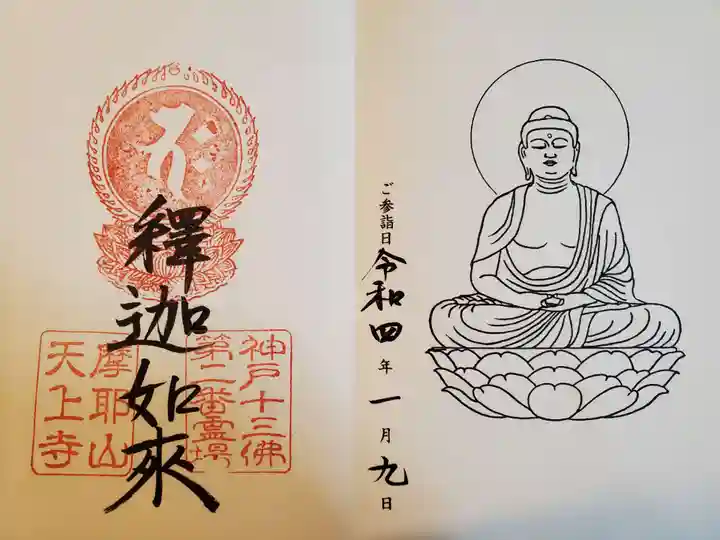 ご参詣日 令和四年一月九日
釋迦如來
神戸十三佛
第二番霊場
摩耶山
天上寺